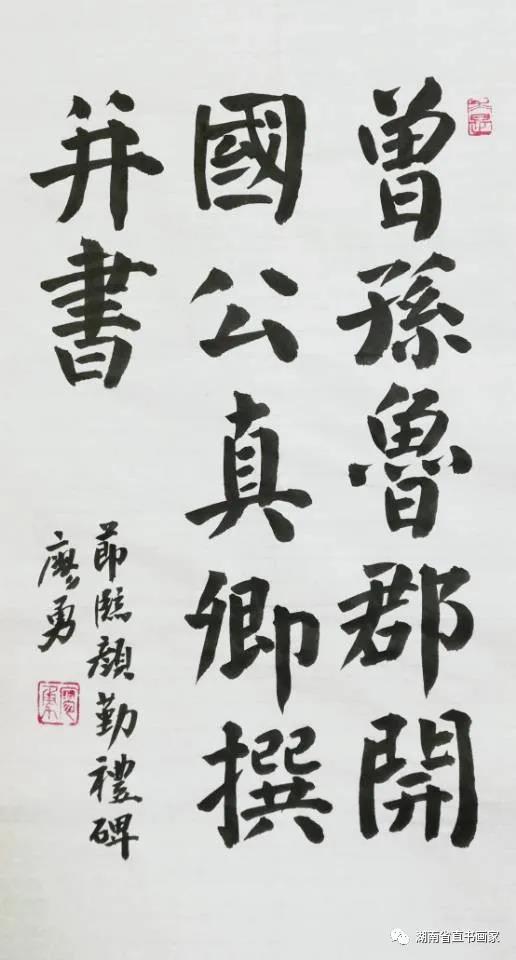 曾孫魯郡開
國公真卿撰
并書
節臨顏勤禮碑
廖勇
湖南省直书画家